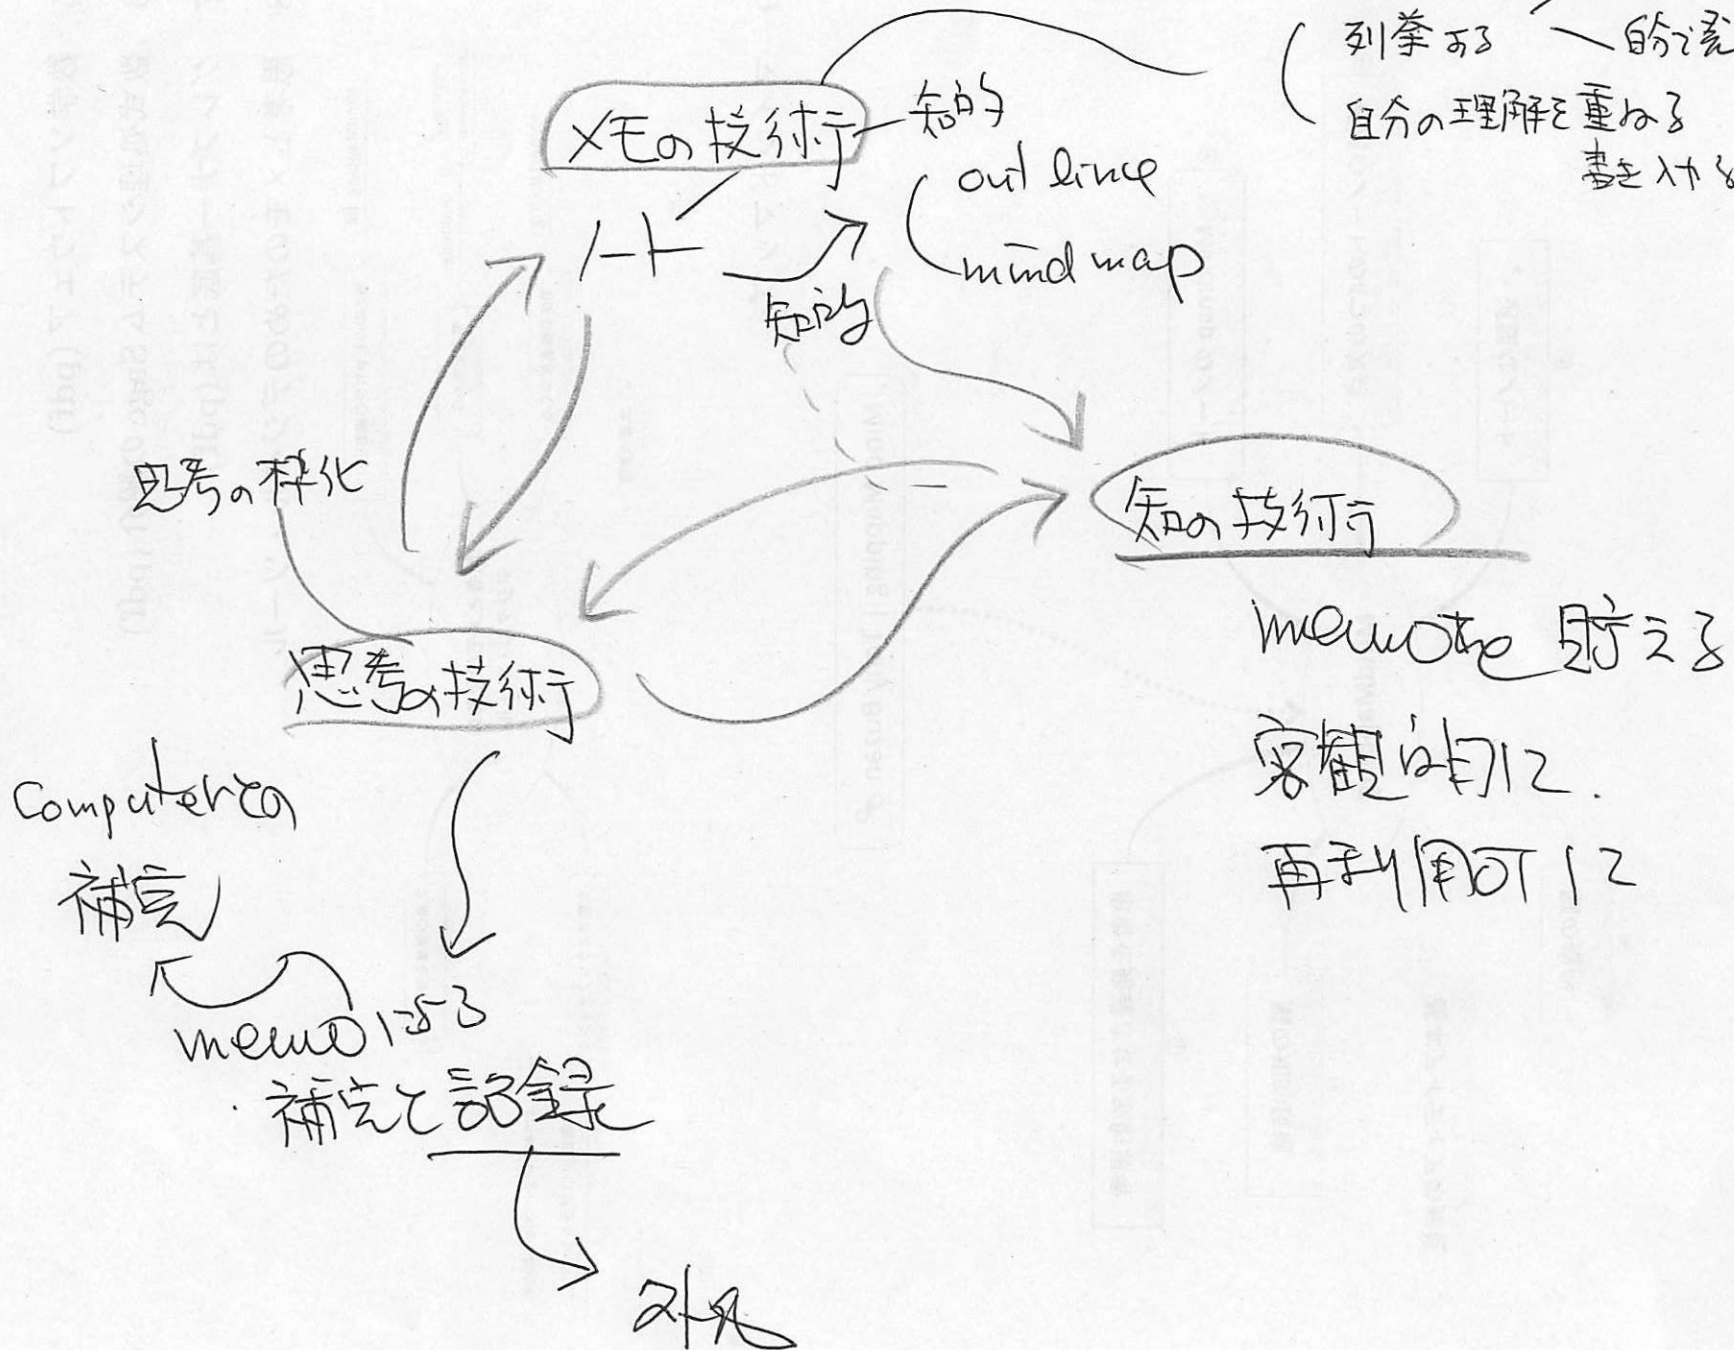 列挙する
自分の理解を重ねる
書き入れる
メモの技術
知的
outline
mindmap
ノート
知的
思考の枠化
知の技術
memoを貯える
客観的に.
再利用可に
思考の技術
computerとの
補完
memoによる
補完と記録
外化